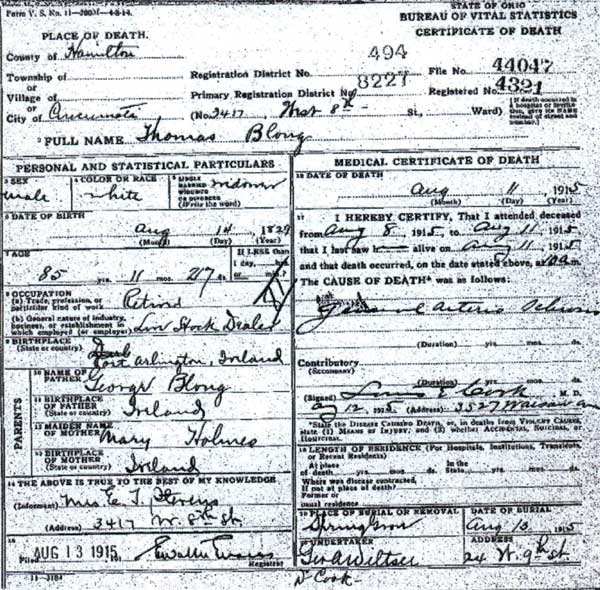 Form V. S. No. 11-200M-4-8-14.
STATE OF OHIO
BUREAU OF VITAL STATISTICS
CERTIFICATE OF DEATH
PLACE OF DEATH.
County of Hamilton
Township of
or
Village of
or
City of Cincinnati
Registration District No. 494
File No. 44047
Primary Registration District No. 8227
Registered No. 4321
(No. 3417, West 8th St., Ward)
[If death occurred in a hospital or institution, give its NAME instead of street and number.]
2 FULL NAME Thomas Blong
PERSONAL AND STATISTICAL PARTICULARS
3 SEX
male
4 COLOR OR RACE
white
5 SINGLE
MARRIED
WIDOWED
OR DIVORCED
(Write the word)
widower
6 DATE OF BIRTH
Aug 14 1829
(Month) (Day) (Year)
7 AGE
85 yrs. 11 mos. 27 ds.
If LESS than
1 day, hrs.
8 OCCUPATION
(a) Trade, profession, or
particular kind of work
Retired
(b) General nature of industry,
business, or establishment in
which employed (or employer)
Live Stock Dealer
9 BIRTHPLACE
(State or country)
Port Arlington, Ireland
PARENTS
10 NAME OF
FATHER
George Blong
11 BIRTHPLACE
OF FATHER
(State or country)
Ireland
12 MAIDEN NAME
OF MOTHER
Mary Holmes
13 BIRTHPLACE
OF MOTHER
(State or country)
Ireland
14 THE ABOVE IS TRUE TO THE BEST OF MY KNOWLEDGE
(Informant) Mrs E. T. Stevens
(Address) 3417 W. 8th St.
15
Filed AUG 13 1915
Registrar
11-3184
MEDICAL CERTIFICATE OF DEATH
16 DATE OF DEATH
Aug 11 1915
(Month) (Day) (Year)
17 I HEREBY CERTIFY, That I attended deceased
from Aug 8, 1915, to Aug 11, 1915
that I last saw h alive on Aug 11, 1915
and that death occurred, on the date stated above, at 10 a m.
The CAUSE OF DEATH* was as follows:
General Arterio
(Duration) yrs. mos. ds.
Contributory
(SECONDARY)
(Duration) yrs. mos. ds.
(Signed) Louis E Cook M. D.
Aug 12, 1915 (Address) 3527 Warsaw av
*State the DISEASE CAUSING DEATH, or, in deaths from VIOLENT CAUSES, state (1) MEANS OF INJURY; and (2) whether ACCIDENTAL, SUICIDAL, or HOMICIDAL.
18 LENGTH OF RESIDENCE (For Hospitals, Institutions, Transients, or Recent Residents)
At place
of death yrs. mos. ds. In the
State yrs. mos. ds.
Where was disease contracted,
if not at place of death?
Former or
usual residence
19 PLACE OF BURIAL OR REMOVAL
Spring Grove
DATE OF BURIAL
Aug 13 1915
20 UNDERTAKER
Geo A Wiltsee
ADDRESS
24 W. 9th St.
Dr Cook